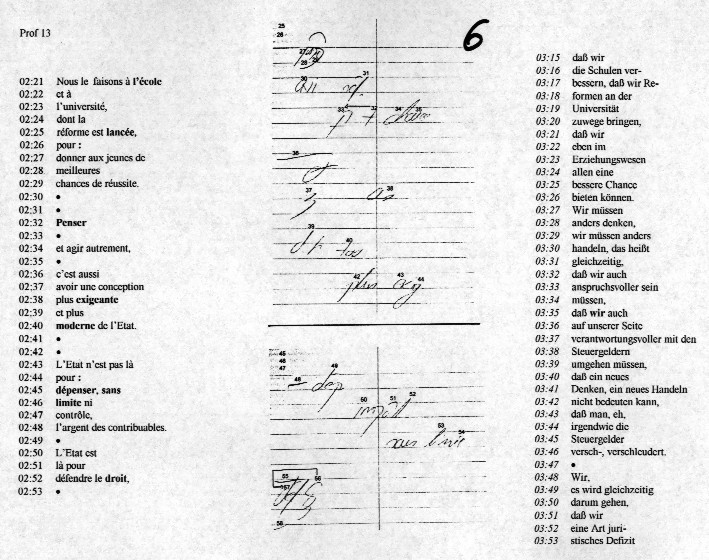 Prof 13
6
02:21 Nous le faisons à l'école
02:22 et à
02:23 l'université,
02:24 dont la
02:25 réforme est lancée,
02:26 pour :
02:27 donner aux jeunes de
02:28 meilleures
02:29 chances de réussite.
02:30 •
02:31 •
02:32 Penser
02:33 •
02:34 et agir autrement,
02:35 •
02:36 c'est aussi
02:37 avoir une conception
02:38 plus exigeante
02:39 et plus
02:40 moderne de l'Etat.
02:41 •
02:42 •
02:43 L'Etat n'est pas là
02:44 pour :
02:45 dépenser, sans
02:46 limite ni
02:47 contrôle,
02:48 l'argent des contribuables.
02:49 •
02:50 L'Etat est
02:51 là pour
02:52 défendre le droit,
02:53 •
25
26
27
28
30
31
33
32
34
35
36
37
38
39
40
42
43
44
plus
45
46
47
48
49
dep
50
51
52
53
54
55
56
57
58
03:15 daß wir
03:16 die Schulen ver-
03:17 bessern, daß wir Re-
03:18 formen an der
03:19 Universität
03:20 zuwege bringen,
03:21 daß wir
03:22 eben im
03:23 Erziehungswesen
03:24 allen eine
03:25 bessere Chance
03:26 bieten können.
03:27 Wir müssen
03:28 anders denken,
03:29 wir müssen anders
03:30 handeln, das heißt
03:31 gleichzeitig,
03:32 daß wir auch
03:33 anspruchsvoller sein
03:34 müssen,
03:35 daß wir auch
03:36 auf unserer Seite
03:37 verantwortungsvoller mit den
03:38 Steuergeldern
03:39 umgehen müssen,
03:40 daß ein neues
03:41 Denken, ein neues Handeln
03:42 nicht bedeuten kann,
03:43 daß man, eh,
03:44 irgendwie die
03:45 Steuergelder
03:46 versch-, verschleudert.
03:47 •
03:48 Wir,
03:49 es wird gleichzeitig
03:50 darum gehen,
03:51 daß wir
03:52 eine Art juri-
03:53 stisches Defizit